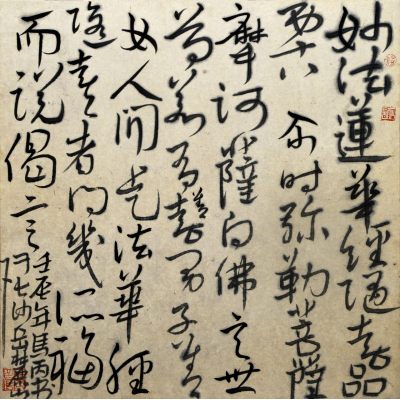 妙法蓮華經隨喜品
第十八 尒时弥勒菩薩
摩訶薩白佛言世
尊若有善男子善
女人聞是法華經
隨喜者得幾所福
而說偈言
壬辰年馬丙書
於長沙